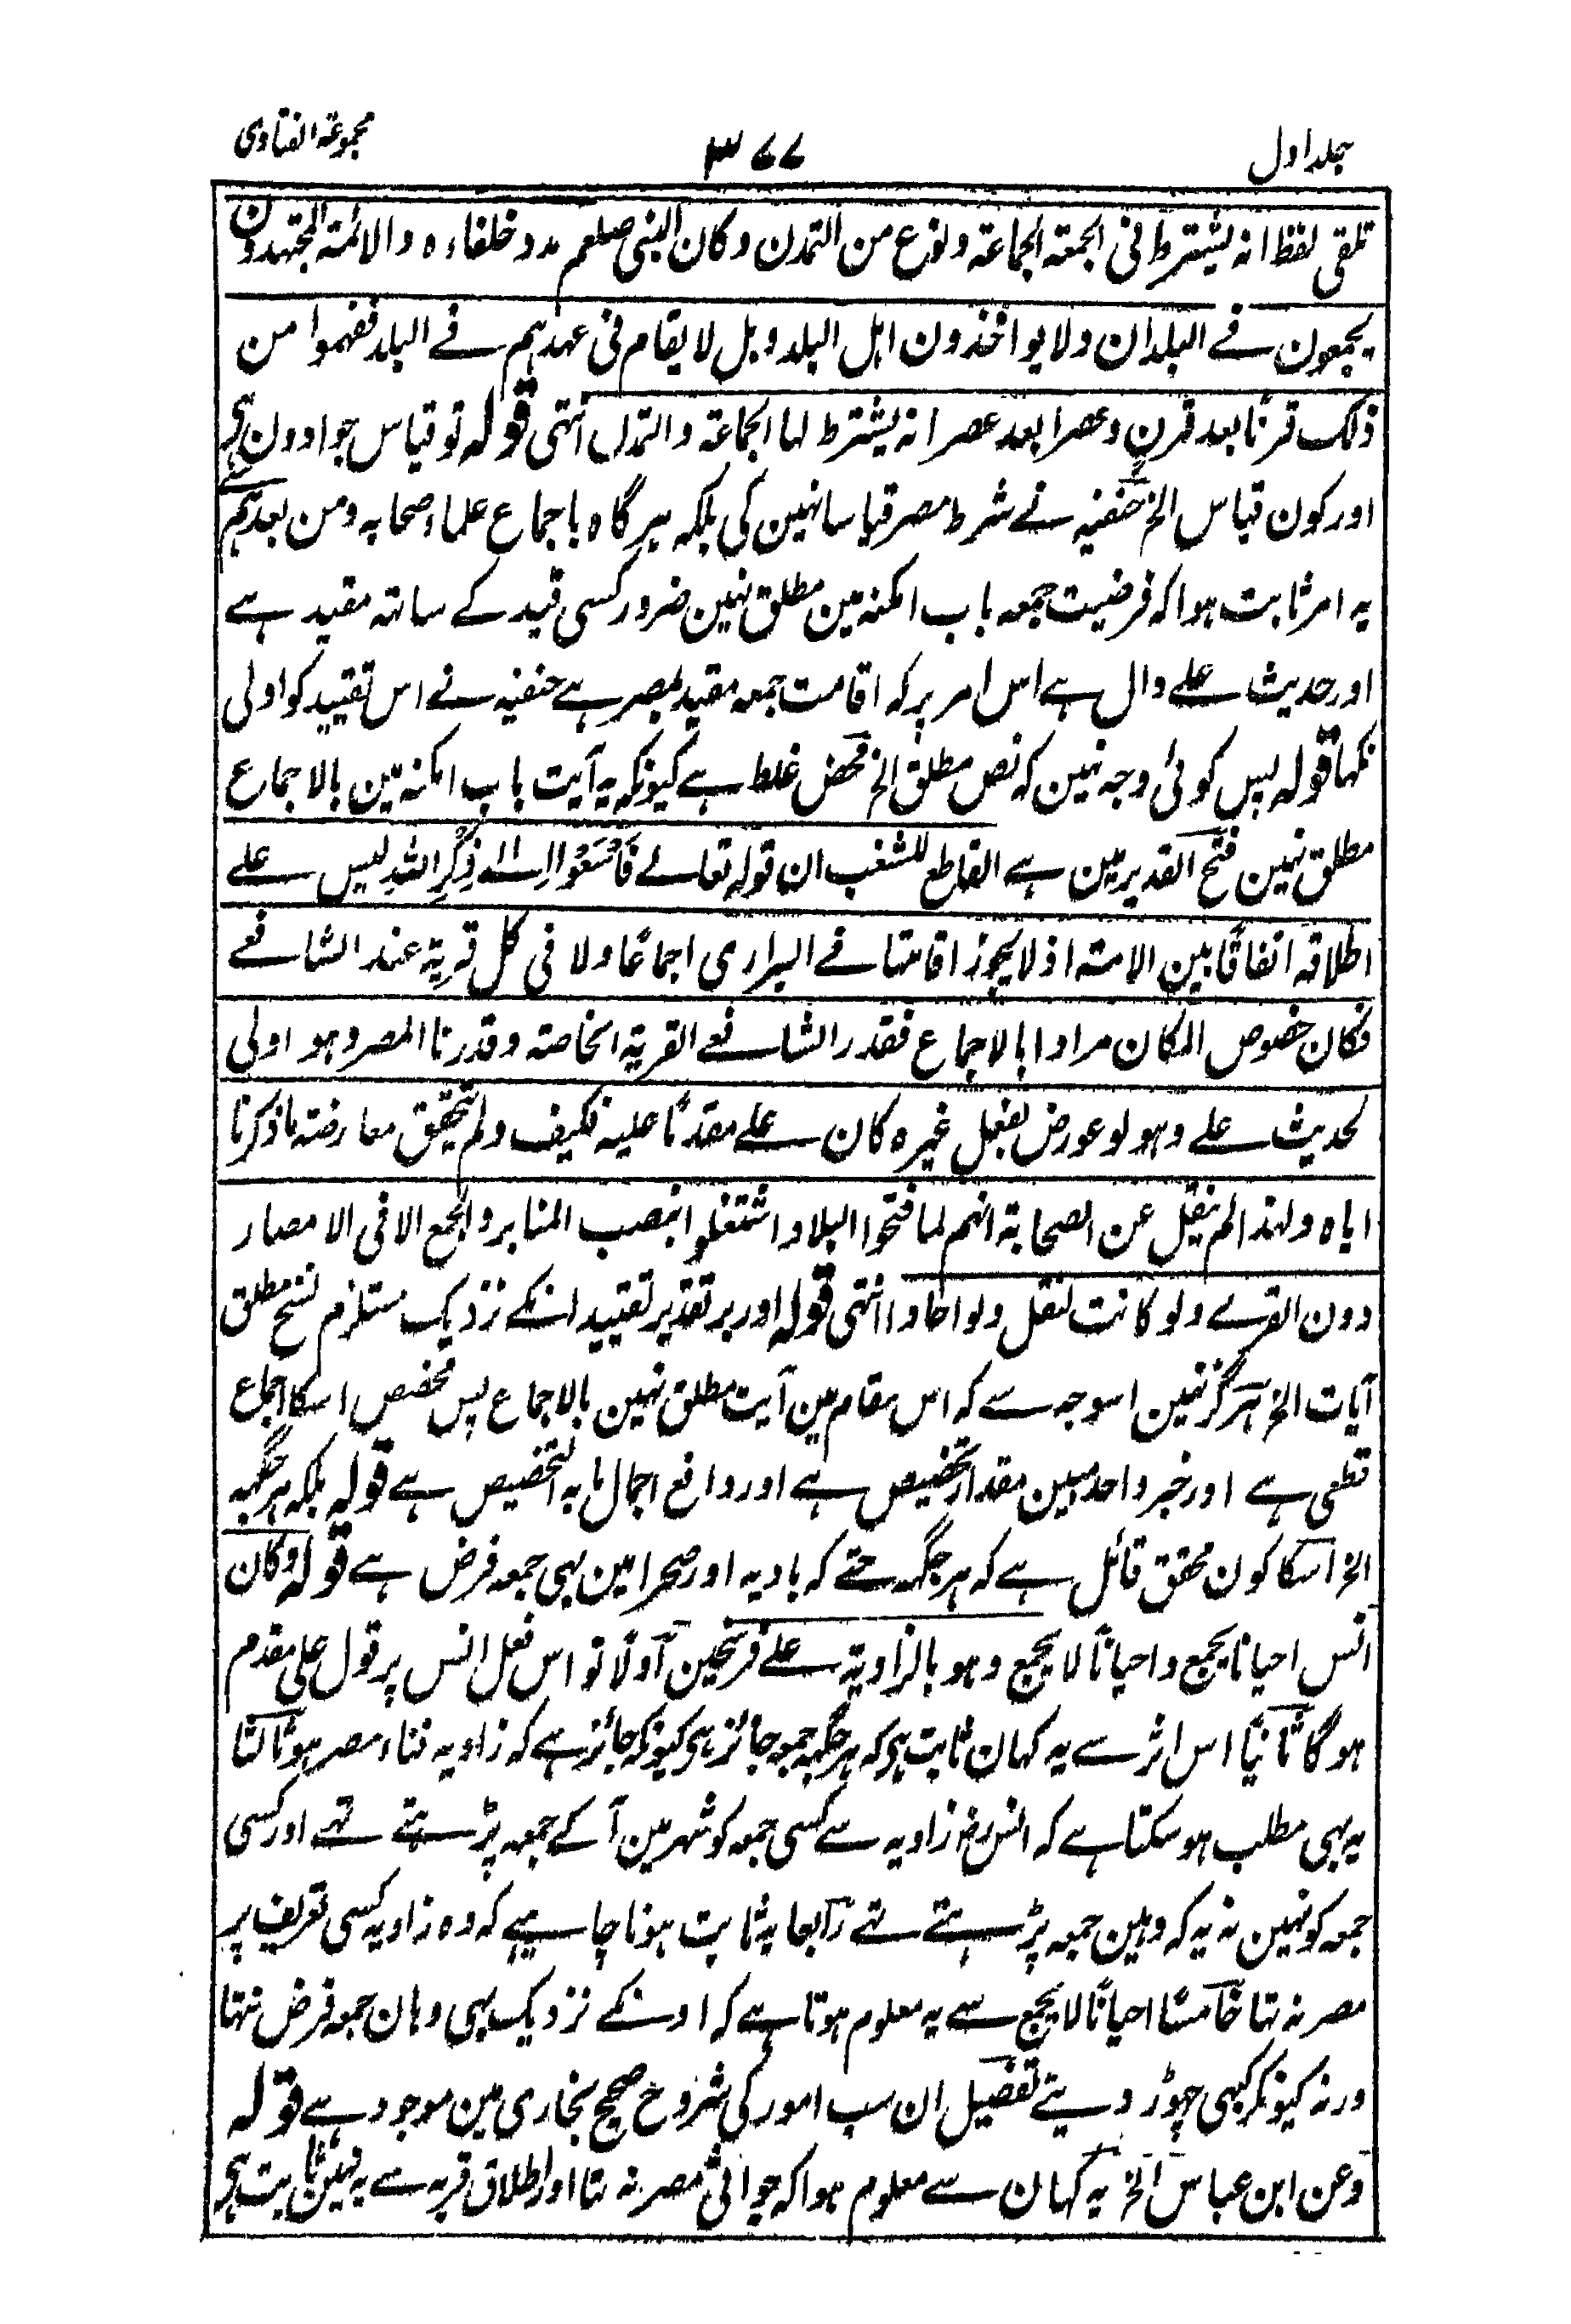 جلد اول
۳۷۷
مجموعۃ الفتاوی
تلقی لفظ انہ یشترط فی الجمعۃ الجماعۃ و نوع من التمدن و کان النبی صلعم و خلفاءہ و الائمۃ المجتہدون
یجمعون فے البلدان ولا یواخذون اہل البلد و بل لا یقام فی عہدہم فے البلد ففہموا من
ذلک قرنًا بعد قرن و عصرا بعد عصر انہ یشترط لہا الجماعۃ و التمدن انتہی قولہ تو قیاس جو ادون ہے
اور کون قیاس الخ حنفیہ نے شرط مصر قیاسا نہین کی بلکہ ہرگاہ باجماع علماء صحابہ و من بعدہم کے
یہ امر ثابت ہوا کہ فرضیت جمعہ باب امکنہ مین مطلق نہین ضرور کسی قید کے ساتہ مقید ہے
اور حدیث علے دال ہے اس امر پر کہ اقامت جمعہ مقید بمصر ہے حنفیہ نے اس تقیید کو اولی
کہا قولہ پس کوئی وجہ نہین کہ نص مطلق الخ محض غلط ہے کیونکہ یہ آیت باب امکنہ مین بالاجماع
مطلق نہین فتح القدیر مین ہے القاطع للشغب ان قولہ تعالے فَاسْعَوْا اِلٰے ذِکْرِ اللّٰہِ لیس علے
اطلاقہ اتفاقًا بین الامتہ اذ لا یجوز اقامتہا فے البراری اجماعًا ولا فی کل قریۃ عند الشافعے
فکان خصوص المکان مرادا بالاجماع فقدر الشافعے القریۃ الخاصۃ و قدرنا المصر و ہو اولی
لحدیث علے و ہو لو عورض بفعل غیرہ کان علے مقدمًا علیہ فکیف و لم یتحقق معارضتہ ما ذکرنا
ایاہ و لہذا لم ینقل عن الصحابۃ انہم لما فتحوا البلاد اشتغلوا بنصب المنابر و الجمع الا فی الامصار
دون القرے ولو کانت لنقل ولو احادا انتہی قولہ اور بر تقدیر تقیید انکے نزدیک مستلزم نسخ مطلق
آیات الخ ہرگز نہین اسوجہ سے کہ اس مقام مین آیت مطلق نہین بالاجماع پس مخصص اسکا اجماع
قطعی ہے اور خبر واحد مبین مقدار تخصیص ہے اور رافع اجمال ما بہ التخصیص ہے قولہ بلکہ ہر جگہہ
الخ اسکا کون محقق قائل ہے کہ ہر جگہہ حتے کہ بادیہ اور صحرا مین بہی جمعہ فرض ہے قولہ و کان
انس احیانا یجمع و احیانًا لا یجمع و ہو بالزاویۃ علے فرسخین اولًا تو اس فعل انس پر قول علی مقدم
ہوگا ثانیًا اس اثر سے یہ کہان ثابت ہی کہ ہر جگہہ جمعہ جائز ہی کیونکہ جائز ہے کہ زاویہ فناء مصر ہو ثالثا
یہ بہی مطلب ہو سکتا ہے کہ انس رضہ زاویہ سے کسی جمعہ کو شہر مین آ کے جمعہ پڑہتے تہے اور کسی
جمعہ کو نہین نہ یہ کہ وہین جمعہ پڑہتے تہے رابعا یہ ثابت ہونا چاہیے کہ وہ زاویہ کسی تعریف پر
مصر نہ تہا خامسًا احیانًا لا یجمع سے یہ معلوم ہوتا ہے کہ اونکے نزدیک بہی وہان جمعہ فرض نتہا
ورنہ کیونکر کبہی چہوڑ دیتے تفصیل ان سب امور کی شروح صحیح بخاری مین موجود ہے قولہ
و عن ابن عباس الخ یہ کہان سے معلوم ہوا کہ جواثی مصر نہ تہا اور اطلاق قریہ سے یہ نہین ثابت ہی